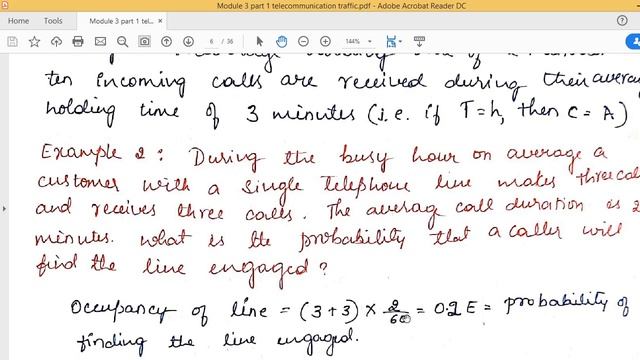 Module 3 part 1 telecommunication traffic.pdf - Adobe Acrobat Reader DC
Home Tools Module 3 part 1 tel... ×
6 / 36 144%
ten incoming calls are received during their average
holding time of 3 minutes (i.e. if T=h, then C = A)
Example 2: During the busy hour on average a
customer with a single telephone line makes three cal
and receives three calls. The average call duration is 2
minutes. what is the probability that a caller will
find the line engaged?
Occupancy of line = (3+3) × 2/60 = 0.2 E = probability of
finding the line engaged.